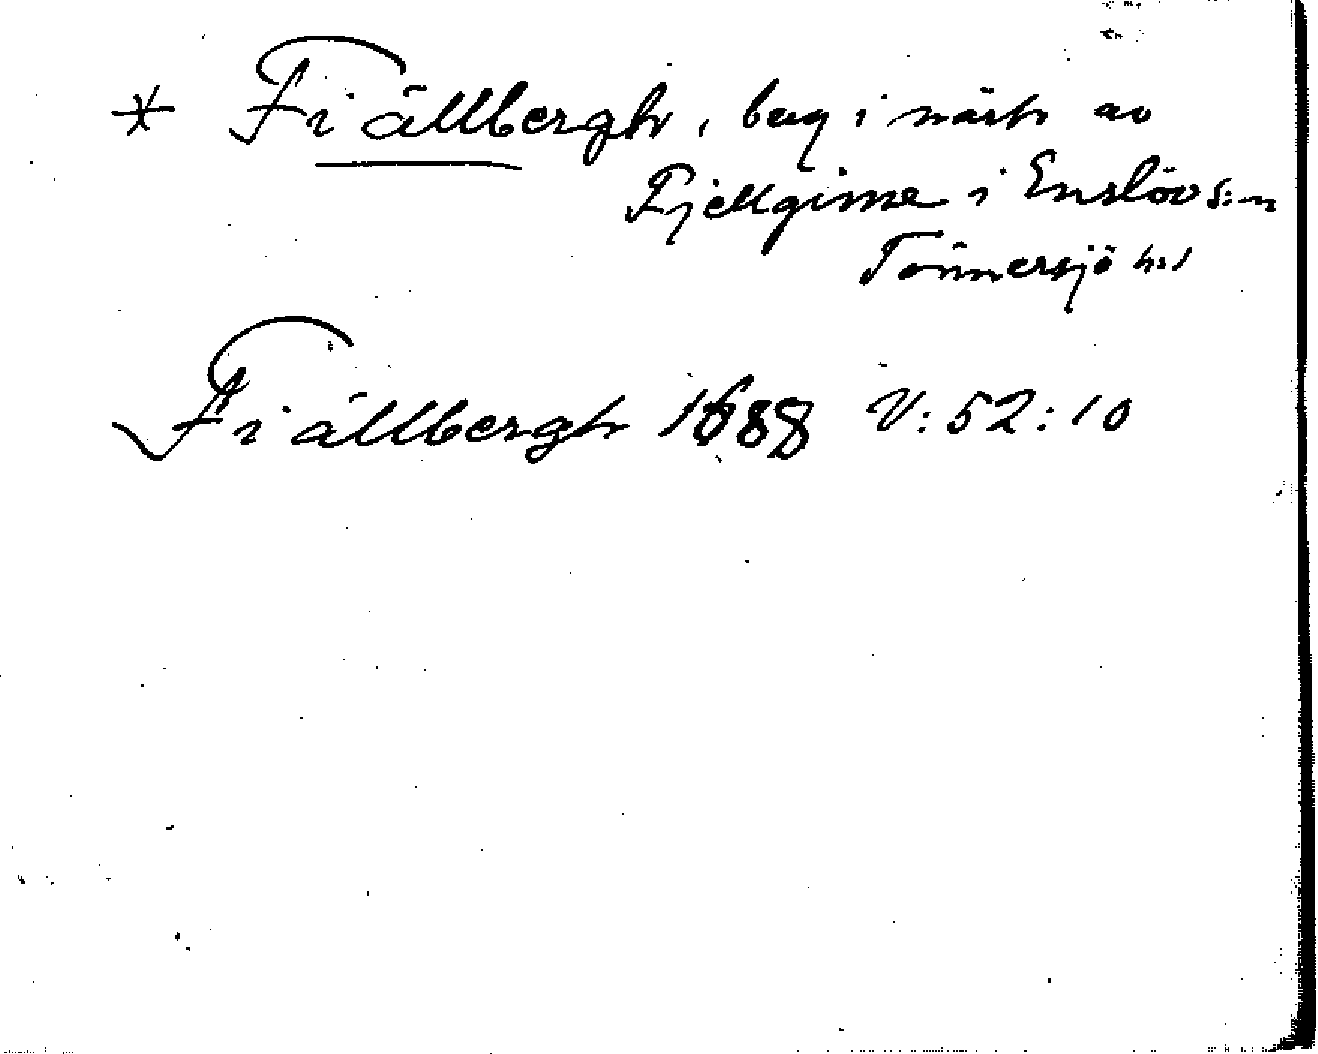 * Fiällbergh, beg i närh av
Fjellgime i Enslöv s:n
Tönnersjö h:d
Fiällbergh 1688 V:52:10